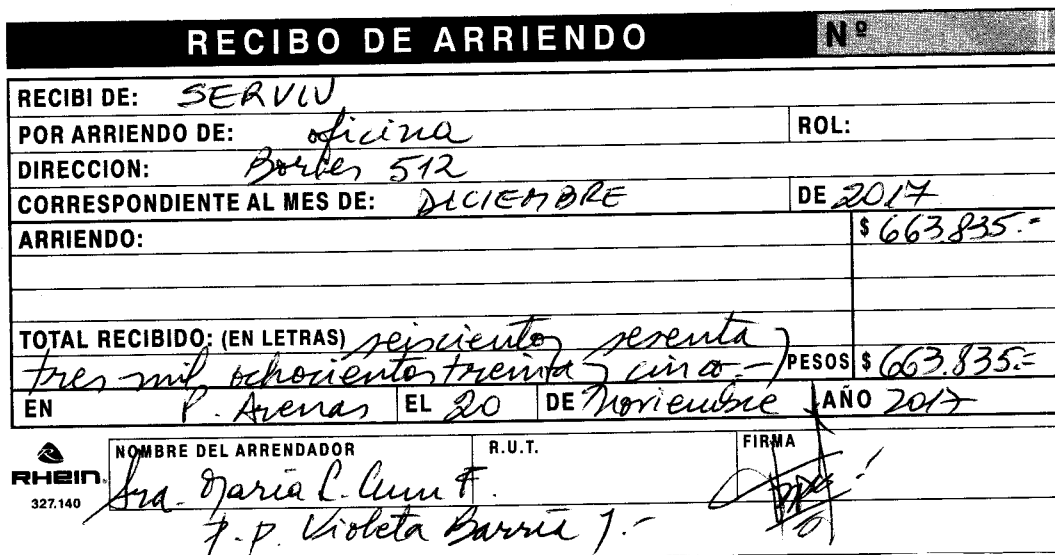 RECIBO DE ARRIENDO Nº
RECIBI DE: SERVIU
POR ARRIENDO DE: oficina ROL:
DIRECCION: 512
CORRESPONDIENTE AL MES DE: DICIEMBRE DE 2017
ARRIENDO: $ 663.835.-
TOTAL RECIBIDO: (EN LETRAS) seiscientos sesenta y
tres mil ochocientos treinta y cinco.- PESOS $ 663.835.=
EN P. Arenas EL 20 DE Noviembre AÑO 2017
NOMBRE DEL ARRENDADOR R.U.T. FIRMA
RHEIN. Sra. María F.
327.140
p.p. Violeta Barría J.-